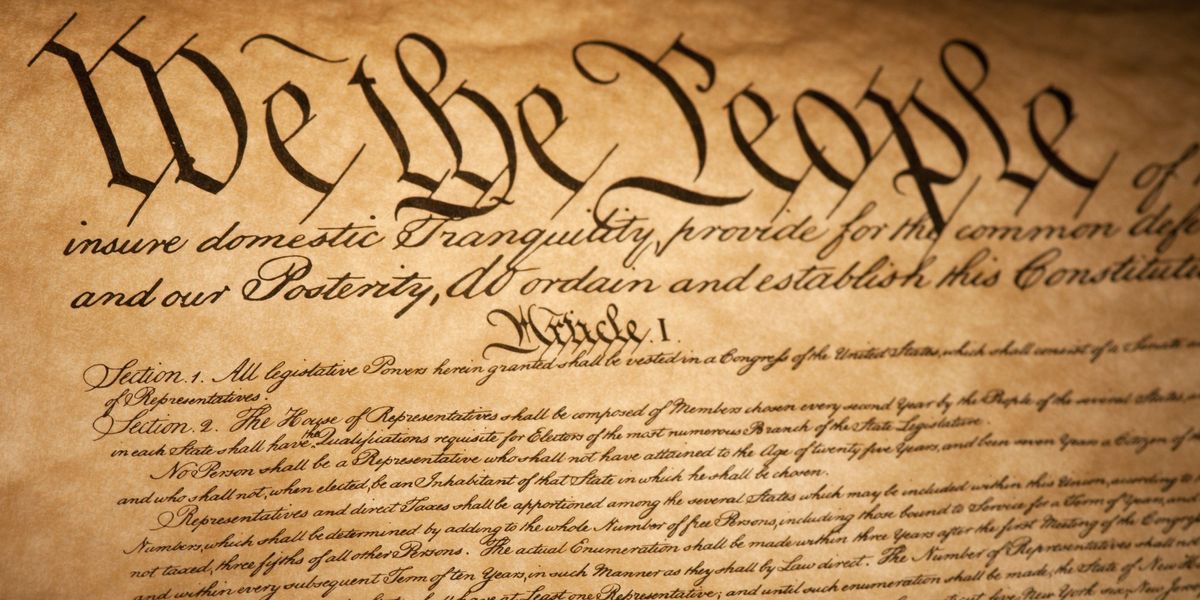 We the People of
insure domestic Tranquility, provide for the common defe
and our Posterity, do ordain and establish this Constituti
Article. I.
Section. 1. All legislative Powers herein granted shall be vested in a Congress of the United States, which shall consist of a Senate
of Representatives.
Section. 2. The House of Representatives shall be composed of Members chosen every second Year by the People of the several States,
in each State shall have the Qualifications requisite for Electors of the most numerous Branch of the State Legislature.
No Person shall be a Representative who shall not have attained to the Age of twenty five Years, and been seven Years a Citizen of
and who shall not, when elected, be an Inhabitant of that State in which he shall be chosen.
Representatives and direct Taxes shall be apportioned among the several States which may be included within this Union, according to
Numbers, which shall be determined by adding to the whole Number of free Persons, including those bound to Service for a Term of Years, and
not taxed, three fifths of all other Persons. The actual Enumeration shall be made within three Years after the first Meeting of the Congress
and within every subsequent Term of ten Years, in such Manner as they shall by Law direct. The Number of Representatives shall not
have at Least one Representative; and until such enumeration shall be made, the State of New
five, New York six, New Jersey